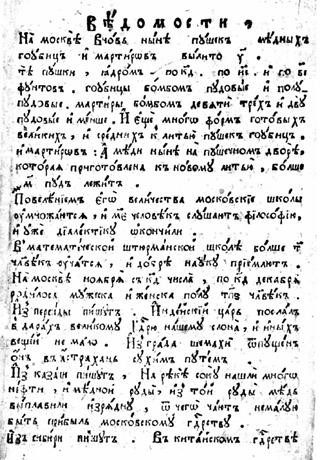 Вѣдомости,
На москвѣ вновь нынѣ пушекъ мѣдныхъ
гоубицъ и мартировъ вылито у҃.
тѣ пушки, ядромъ по кд҃. по иі҃ и по ві҃
фунтовъ. гоубицы бомбомъ пудовые и полу
пудовые. мартиры бомбомъ девяти трехъ и дву
пудовые и менше. И еще много формъ готовыхъ
великихъ, и среднихъ к литью пушекъ гоубицъ
и мартировъ: А мѣди нынѣ на пушечномъ дворѣ,
которая приготовлена къ новому литью, болше
м҃ пудъ лежитъ.
Повелѣниемъ Его величества московские школы
оумножаются, и м҃е человѣкъ слушаютъ філософію,
и уже діалектіку окончили.
В математіческой штюрманской школѣ болше т҃
человѣкъ оучатся, и добрѣ науку приемлютъ.
На москвѣ ноября съ кд҃ числа, по кд҃ декабря
родилося мужеска и женска полу тпѕ҃ человѣкъ.
Из персіды пишутъ. Индѣйскій царь послалъ
в дарахъ великому Гдⷭ҇рю нашему слона, и иныхъ
вещей не мало. Из града шемахи ѿпущенъ
онъ в астрахань сухимъ путемъ.
Из казани пишутъ, На рѣкѣ соку нашли много
нефти, и мѣдной руды, из той руды мѣдь
выплавили изрядну, ѿ чего чаютъ немалую
быть прибыль московскому гдⷭ҇рству.
Из сибири пишутъ. В китайскомъ гдⷭ҇рствѣ